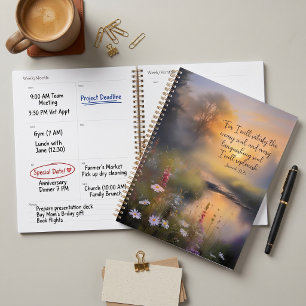 Weekly Month
9:00 AM Team
Meeting
3:30 PM Vet Appt
Gym (7 AM)
Lunch with
Jane (12:30)
Special Date!
Anniversary
Dinner 7 PM
Prepare presentation deck
Buy Mom's B-day gift
Book flights
Project Deadline
Farmer's Market
Pick up dry cleaning
Church (10:00 AM)
Family Brunch
For I will satisfy the
weary soul, and every
languishing soul
I will replenish.